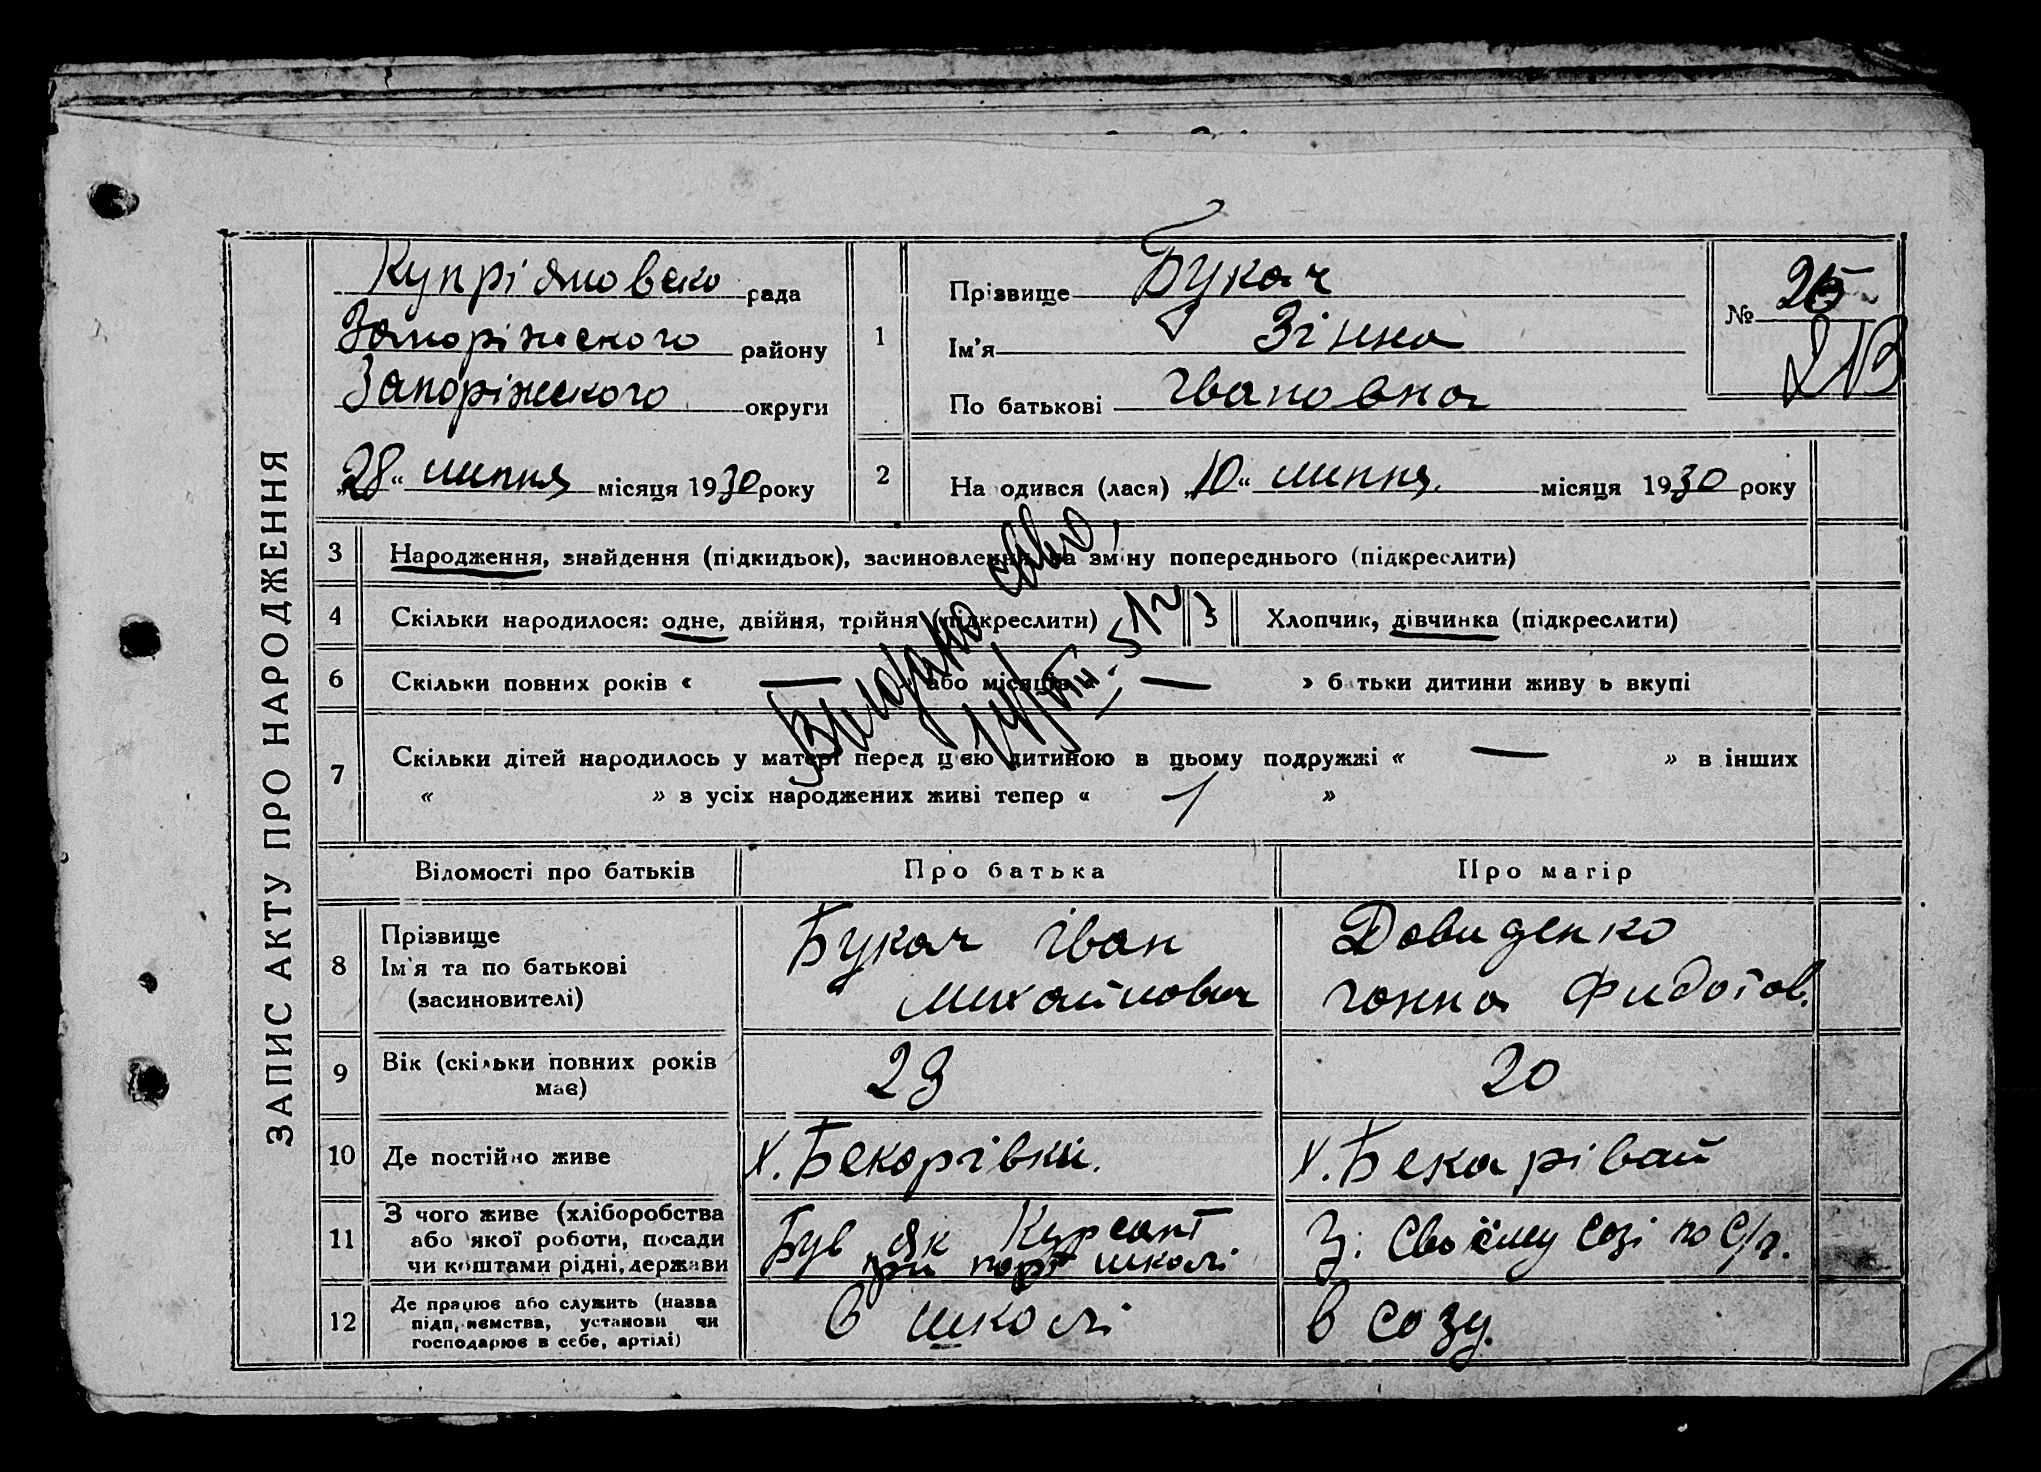 ЗАПИС АКТУ ПРО НАРОДЖЕННЯ
Купріяновско рада
Запоріжського району
Запоріжського округи
„28“ липня місяця 1930 року
1
Прізвище Букач
Ім'я Зінна
По батькові Івановна
№ 25
2
На одився (лася) „10“ липня місяця 1930 року
3 Народження, знайдення (підкидьок), засиновлення на зміну попереднього (підкреслити)
4 Скільки народилося: одне, двійня, трійня (підкреслити) 5 Хлопчик, дівчинка (підкреслити)
6 Скільки повних років « — » або місяців « — » батьки дитини живуть вкупі
7 Скільки дітей народилось у матері перед цією дитиною в цьому подружжі « — » в інших
« » з усіх народжених живі тепер « 1 »
Відомості про батьків Про батька Про матір
8 Прізвище
Ім'я та по батькові
(засиновителі)
Букач Іван
Михайлович
Довиденко
Ганна Фидотов.
9 Вік (скільки повних років
має)
29
20
10 Де постійно живе
х. Бекарівки.
х. Бекарівай
11 З чого живе (хліборобства
або якої роботи, посади
чи коштами рідні, держави
Був як Курсант
при парт школі
З. Своєму Созі по С/г.
12 Де працює або служить (назва
підприємства, установи чи
господарює в себе, артілі)
в школі
в созу.